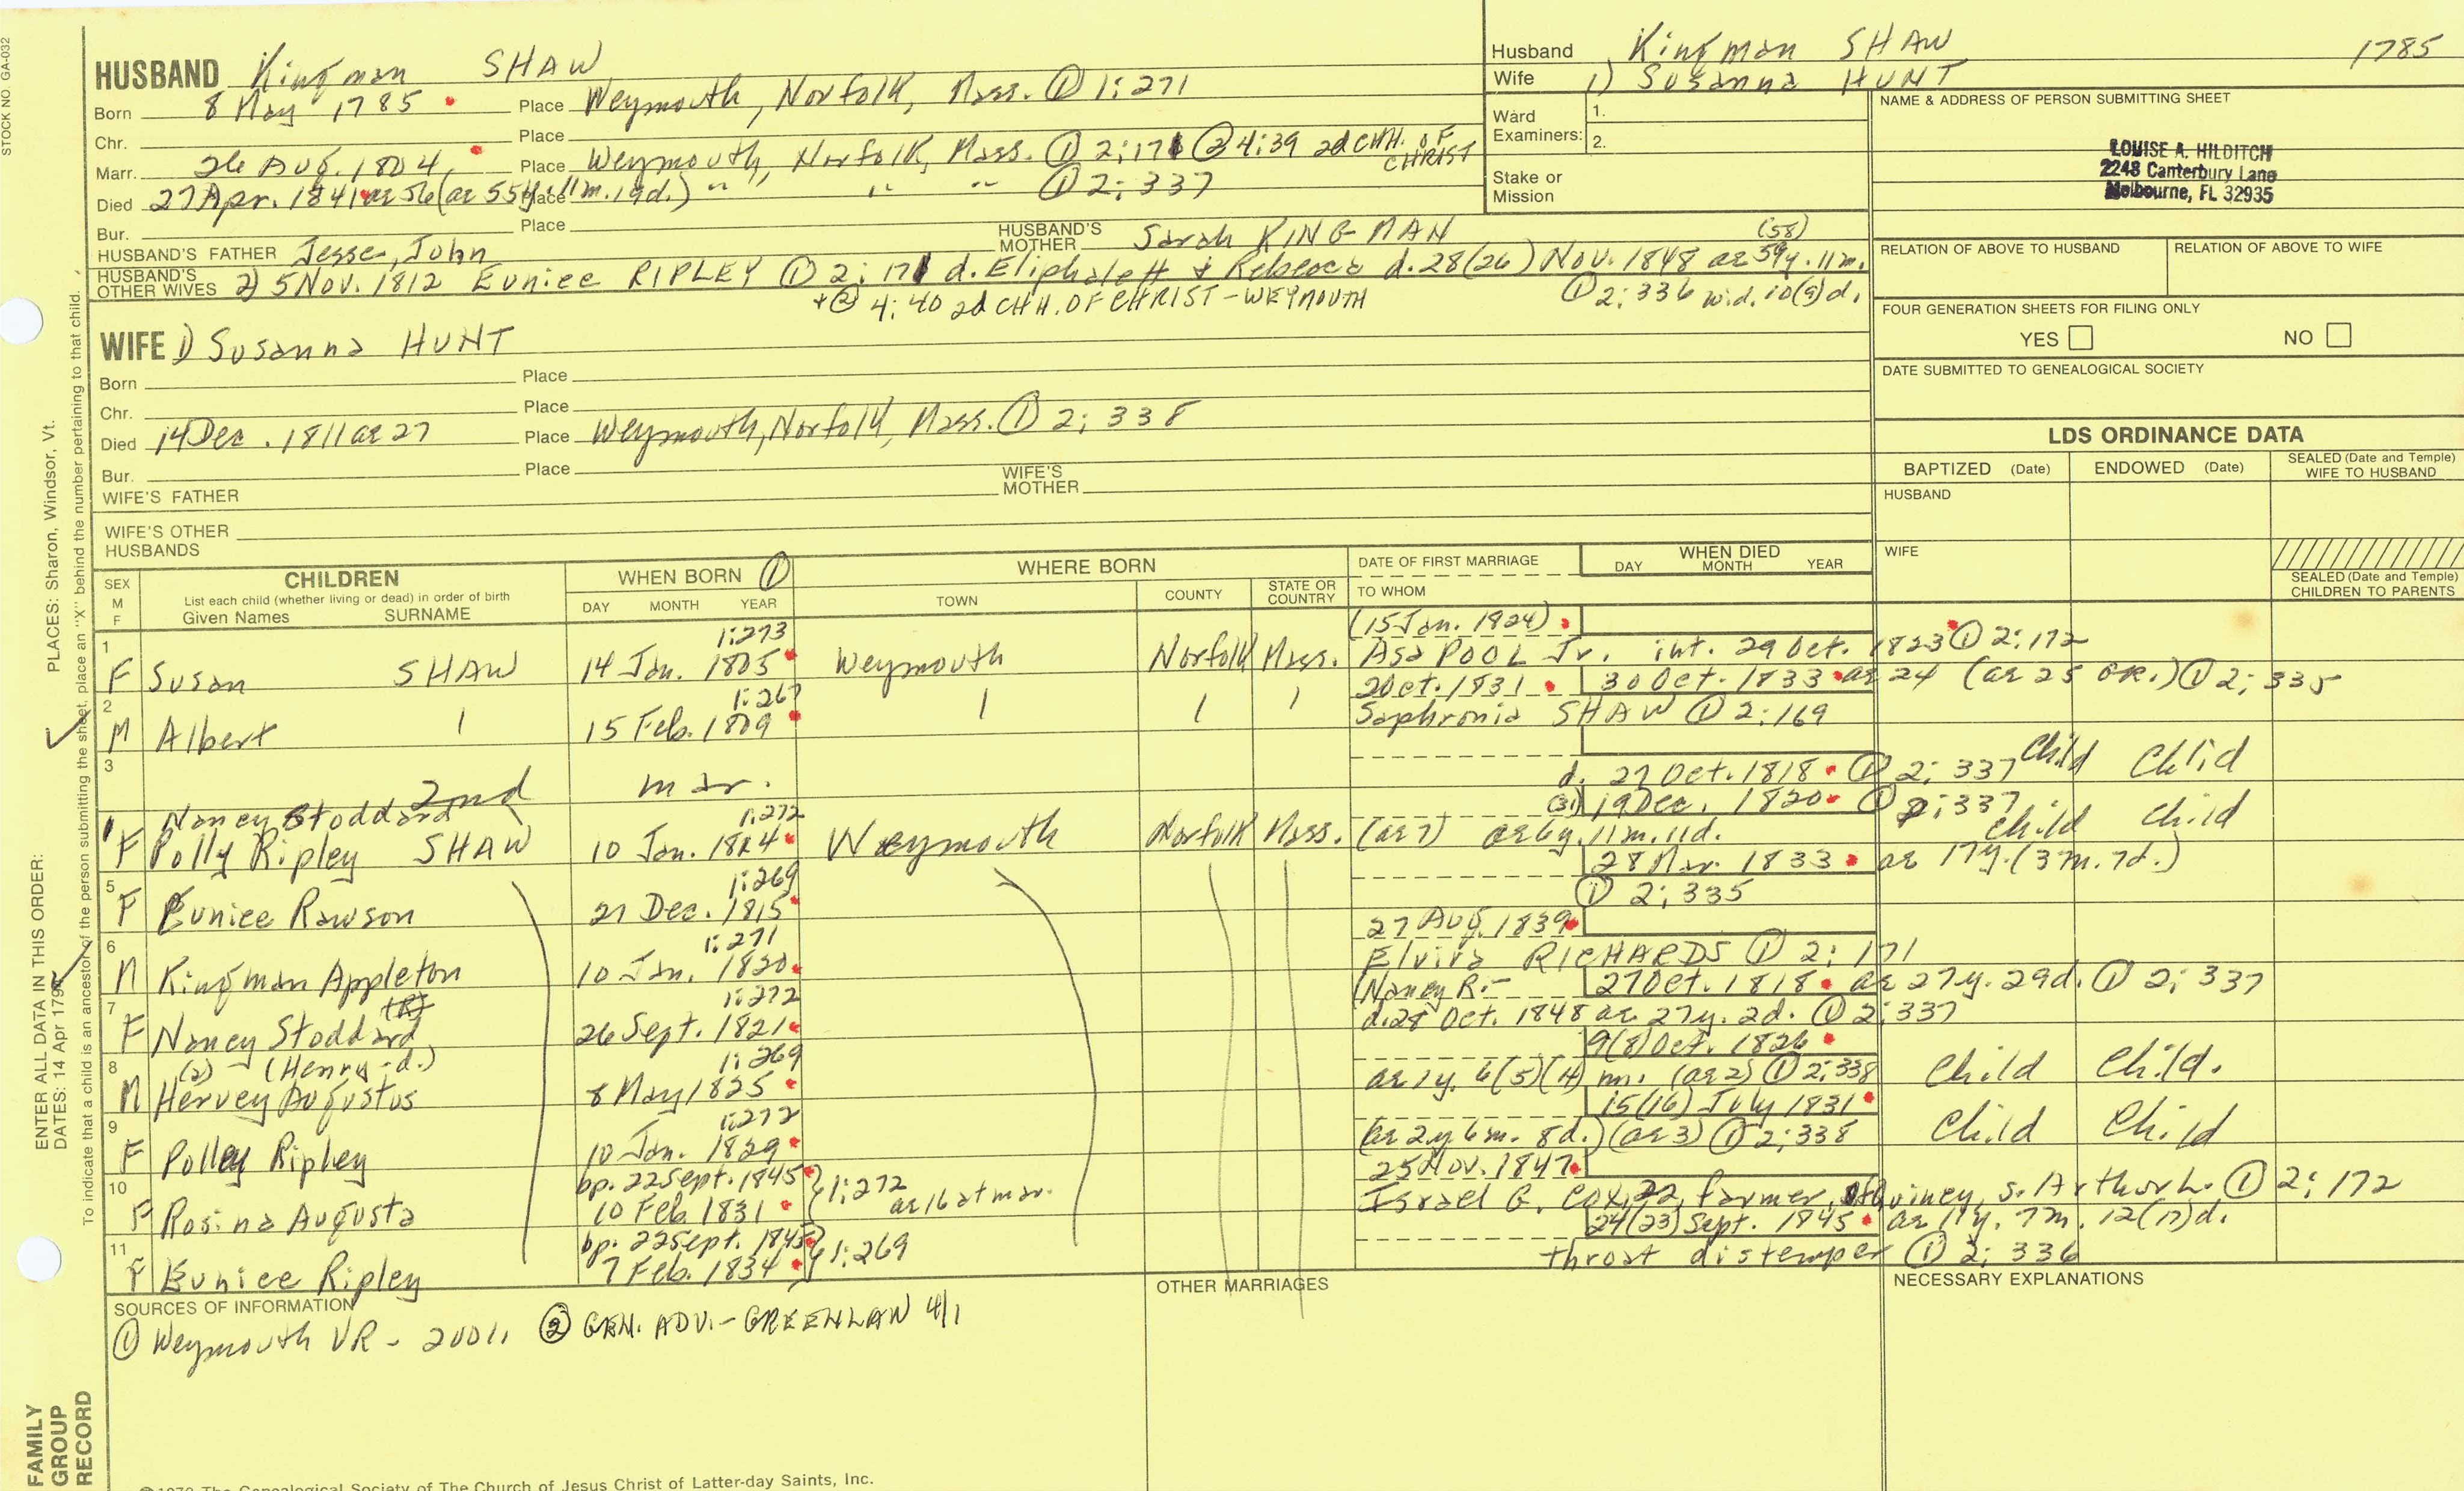 STOCK NO. GA-032
HUSBAND Kingman SHAW
Born 8 May 1785 Place Weymouth, Norfolk, Mass. ① 1:271
Chr. Place
Marr. 26 Aug. 1804, Place Weymouth, Norfolk, Mass. ① 2:171 ② 4:39 2d CHH. OF CHRIST
Died 27 Apr. 1841 ae 56 (ae 55y. 11m. 19d.) Place " " " " ① 2:337
Bur. Place
HUSBAND'S FATHER Jesse, John HUSBAND'S MOTHER Sarah KINGMAN
HUSBAND'S OTHER WIVES 2) 5 Nov. 1812 Eunice RIPLEY ① 2:171 d. Eliphalett & Rebecca d. 28(26) Nov. 1848 ae 59y. (58) 11m.
+ ② 4:40 2d CHH. OF CHRIST - WEYMOUTH ① 2:336 wid. 10(9)d.
WIFE 1) Susanna HUNT
Born Place
Chr. Place
Died 14 Dec. 1811 ae 27 Place Weymouth, Norfolk, Mass. ① 2:338
Bur. Place
WIFE'S FATHER WIFE'S MOTHER
WIFE'S OTHER HUSBANDS
Husband Kingman SHAW 1785
Wife 1) Susanna HUNT
Ward Examiners: 1.
2.
Stake or Mission
NAME & ADDRESS OF PERSON SUBMITTING SHEET
LOUISE A. HILDITCH
2248 Canterbury Lane
Melbourne, FL 32935
RELATION OF ABOVE TO HUSBAND RELATION OF ABOVE TO WIFE
FOUR GENERATION SHEETS FOR FILING ONLY
YES NO
DATE SUBMITTED TO GENEALOGICAL SOCIETY
LDS ORDINANCE DATA
BAPTIZED (Date) ENDOWED (Date) SEALED (Date and Temple) WIFE TO HUSBAND
HUSBAND
WIFE
SEALED (Date and Temple) CHILDREN TO PARENTS
SEX M F CHILDREN WHEN BORN ① WHERE BORN DATE OF FIRST MARRIAGE WHEN DIED
List each child (whether living or dead) in order of birth DAY MONTH YEAR TOWN COUNTY STATE OR COUNTRY TO WHOM DAY MONTH YEAR
Given Names SURNAME
1 1:273 (15 Jan. 1824)
F Susan SHAW 14 Jan. 1805 Weymouth Norfolk Mass. Asa POOL Jr. int. 29 Oct. 1823 ① 2:172
2 1:267 2 Oct. 1831 30 Oct. 1833 ae 24 (ae 25 GR.) ① 2:335
M Albert 15 Feb. 1809 Sophronia SHAW ① 2:169
3 2nd mar. d. 27 Oct. 1818 ① 2:337 Child Child
Nancy Stoddard 1:272 (31) 19 Dec. 1820 ① 2:337 Child Child
F Polly Ripley SHAW 10 Jan. 1814 Weymouth Norfolk Mass. (ae 7) ae 6y. 11m. 11d.
5 1:269 28 Mar. 1833 ae 17y. (3m. 7d.)
F Eunice Rawson 21 Dec. 1815 ① 2:335
6 1:271 27 Aug. 1839
M Kingman Appleton 10 Jan. 1820 Elvira RICHARDS ① 2:171
7 (R) 1:272 (Nancy R.- 27 Oct. 1818 ae 27y. 29d. ① 2:337
F Nancy Stoddard 26 Sept. 1821 d. 28 Oct. 1848 ae. 27y. 2d. ① 2:337
8 (2) (Henry - d.) 1:269 9(8) Oct. 1826
M Hervey Augustus 8 May 1825 ae 1y. 6(5)(4) m. (ae 2) ① 2:338 Child Child.
9 1:272 15(16) July 1831
F Polley Ripley 10 Jan. 1829 (ae 2y. 6m. 8d.) (ae 3) ① 2:338 Child Child
10 bp. 22 Sept. 1845 } 1:272 25 Nov. 1847
F Rosina Augusta 10 Feb. 1831 ae 16 at mar. Israel G. COX, 22, farmer, of Quincy, s. Arthur L. ① 2:172
11 bp. 22 Sept. 1845 } 1:269 24(23) Sept. 1845 ae 11y. 7m. 12(17)d.
F Eunice Ripley 7 Feb. 1834 throat distemper ① 2:336
SOURCES OF INFORMATION OTHER MARRIAGES NECESSARY EXPLANATIONS
① Weymouth VR - ② GEN. ADV. - GREENLAW 4/1
FAMILY GROUP RECORD
ENTER ALL DATA IN THIS ORDER:
DATES: 14 Apr 1792
PLACES: Sharon, Windsor, Vt.
To indicate that a child is an ancestor of the person submitting the sheet, place an "X" behind the number pertaining to that child.
The Genealogical Society of The Church of Jesus Christ of Latter-day Saints, Inc.